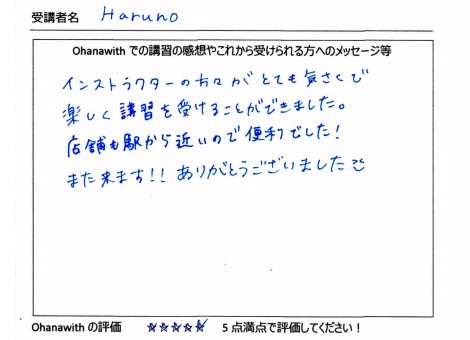 受講者名 Haruno
Ohanawith での講習の感想やこれから受けられる方へのメッセージ等
インストラクターの方々がとても気さくで
楽しく講習を受けることができました。
店舗も駅から近いので便利でした！
また来ます！！ ありがとうございました
Ohanawith の評価 ★★★★★ 5 点満点で評価してください！